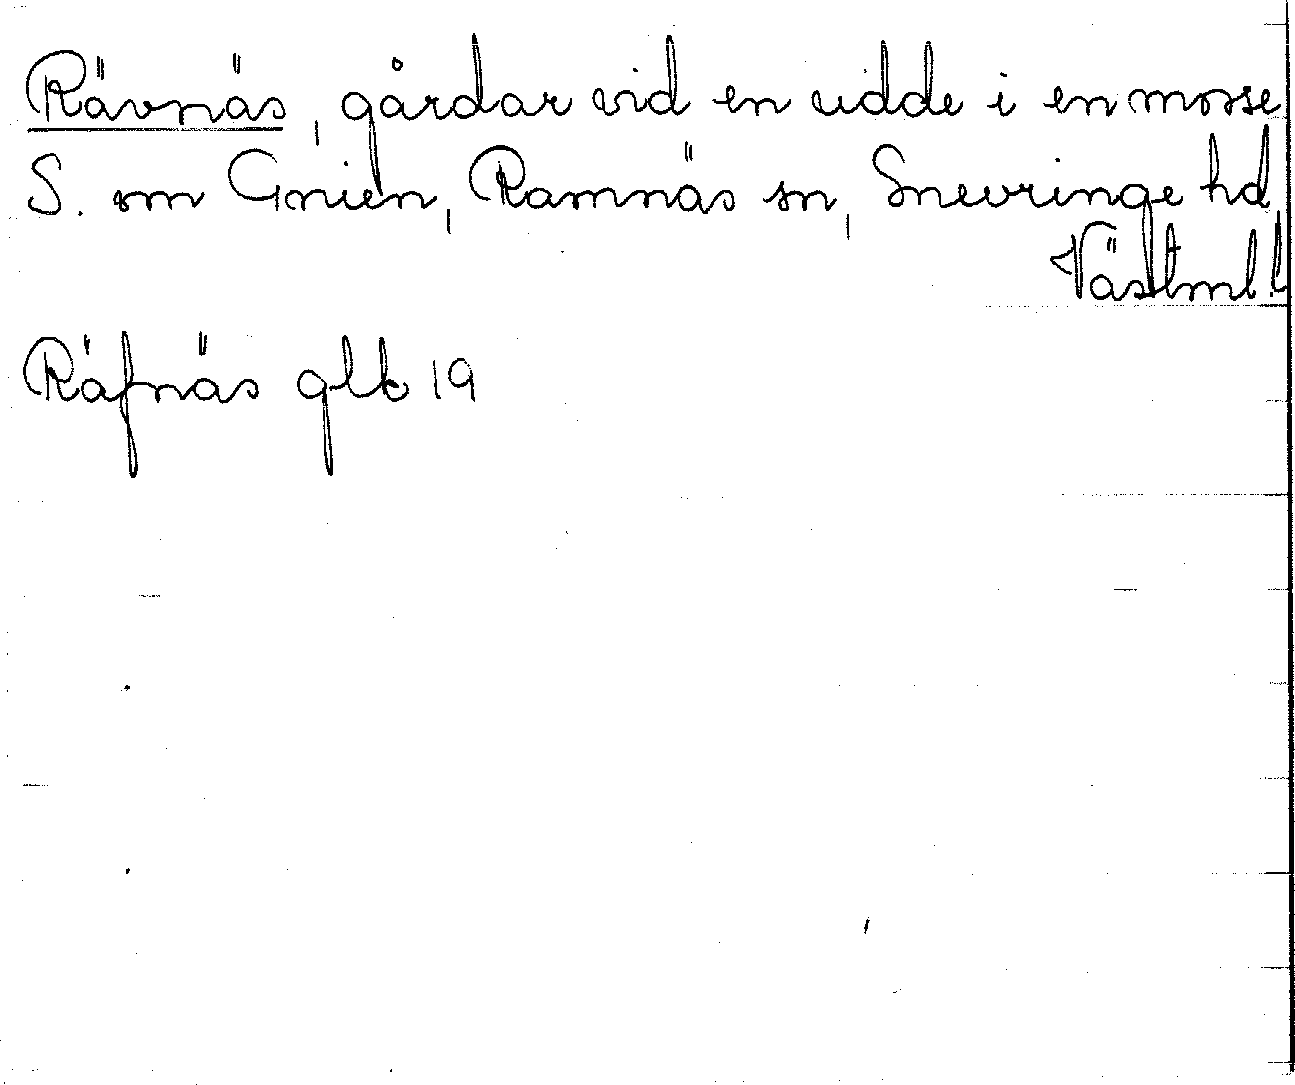 Rävnäs, gårdar vid en udde i en mosse
S. om Gnien, Ramnäs sn, Snevringe hd,
Västml.
Räfnäs glk 19